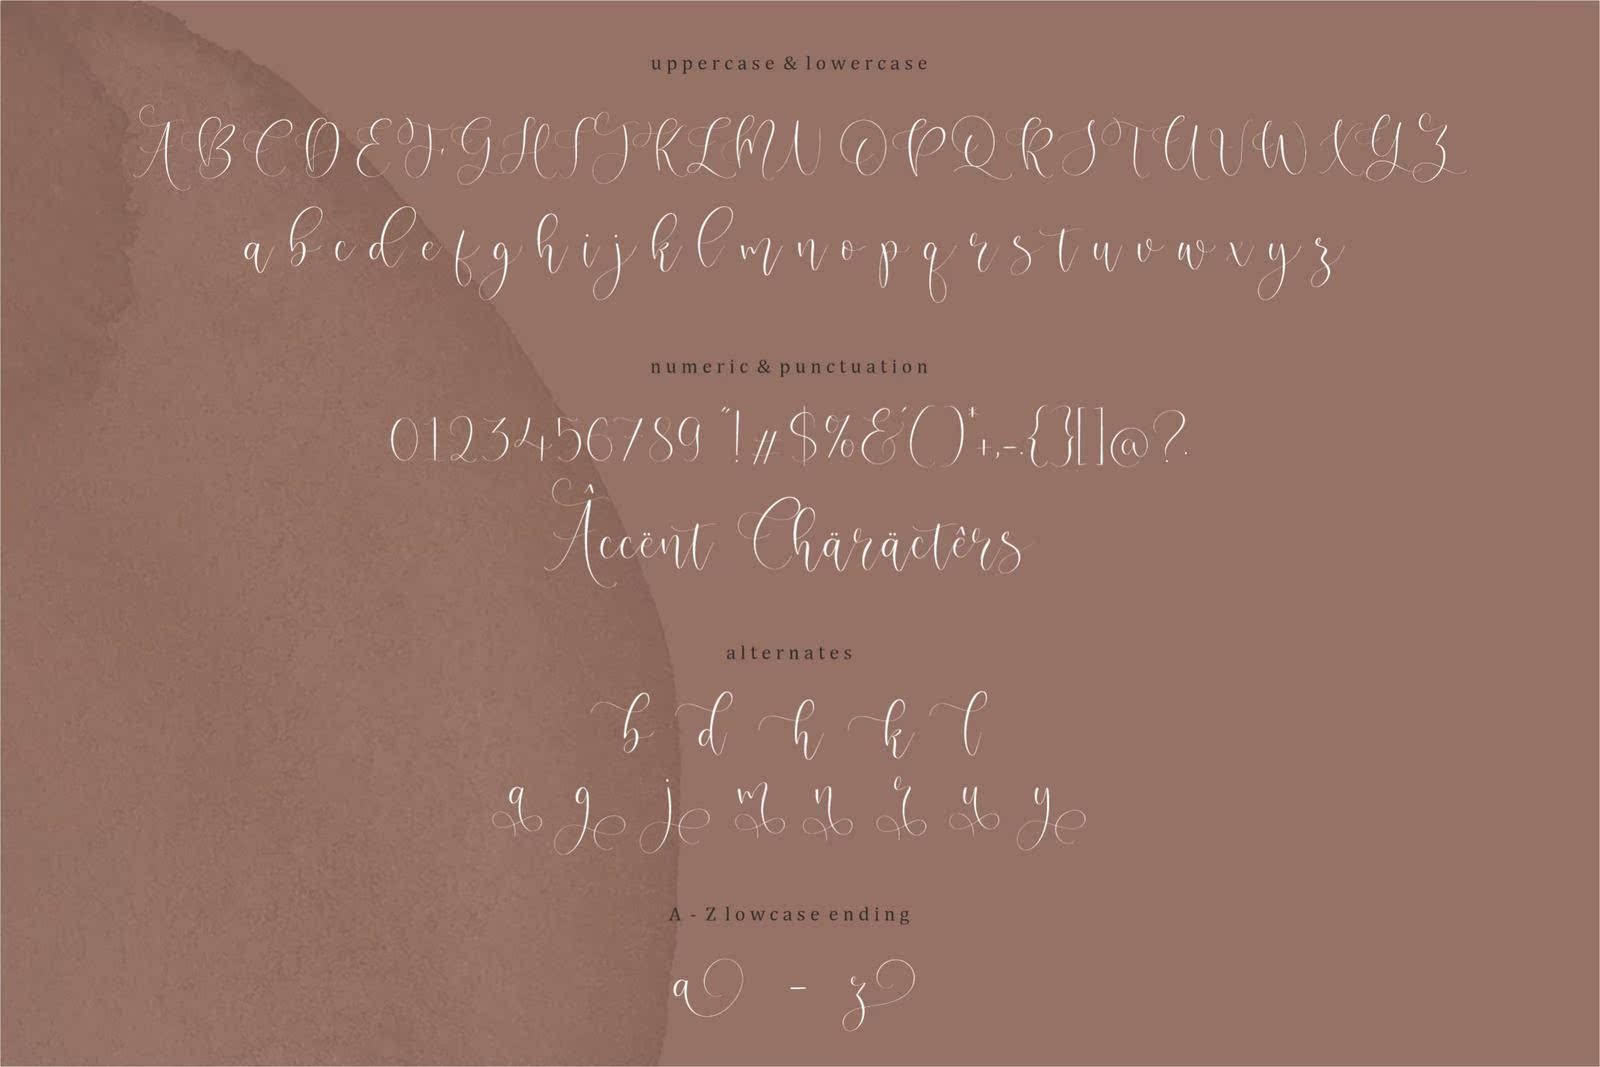 uppercase & lowercase
A B C D E F G H I J K L M N O P Q R S T U V W X Y Z
a b c d e f g h i j k l m n o p q r s t u v w x y z
numeric & punctuation
0123456789 "!#$%&'()*+,-.{}[]@?.
Âccënt Chäräctêrs
alternates
b d h k l
a g j m n r u y
A - Z lowcase ending
a - z